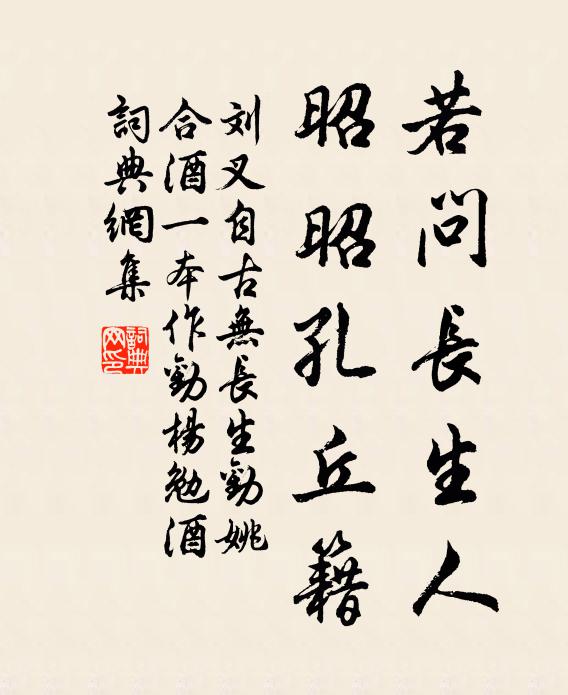 若问長生人
昭昭孔丘籍
刘叉自古無長生勸姚
合酒一本作勸楊勉酒
詞典網集
詞典網印